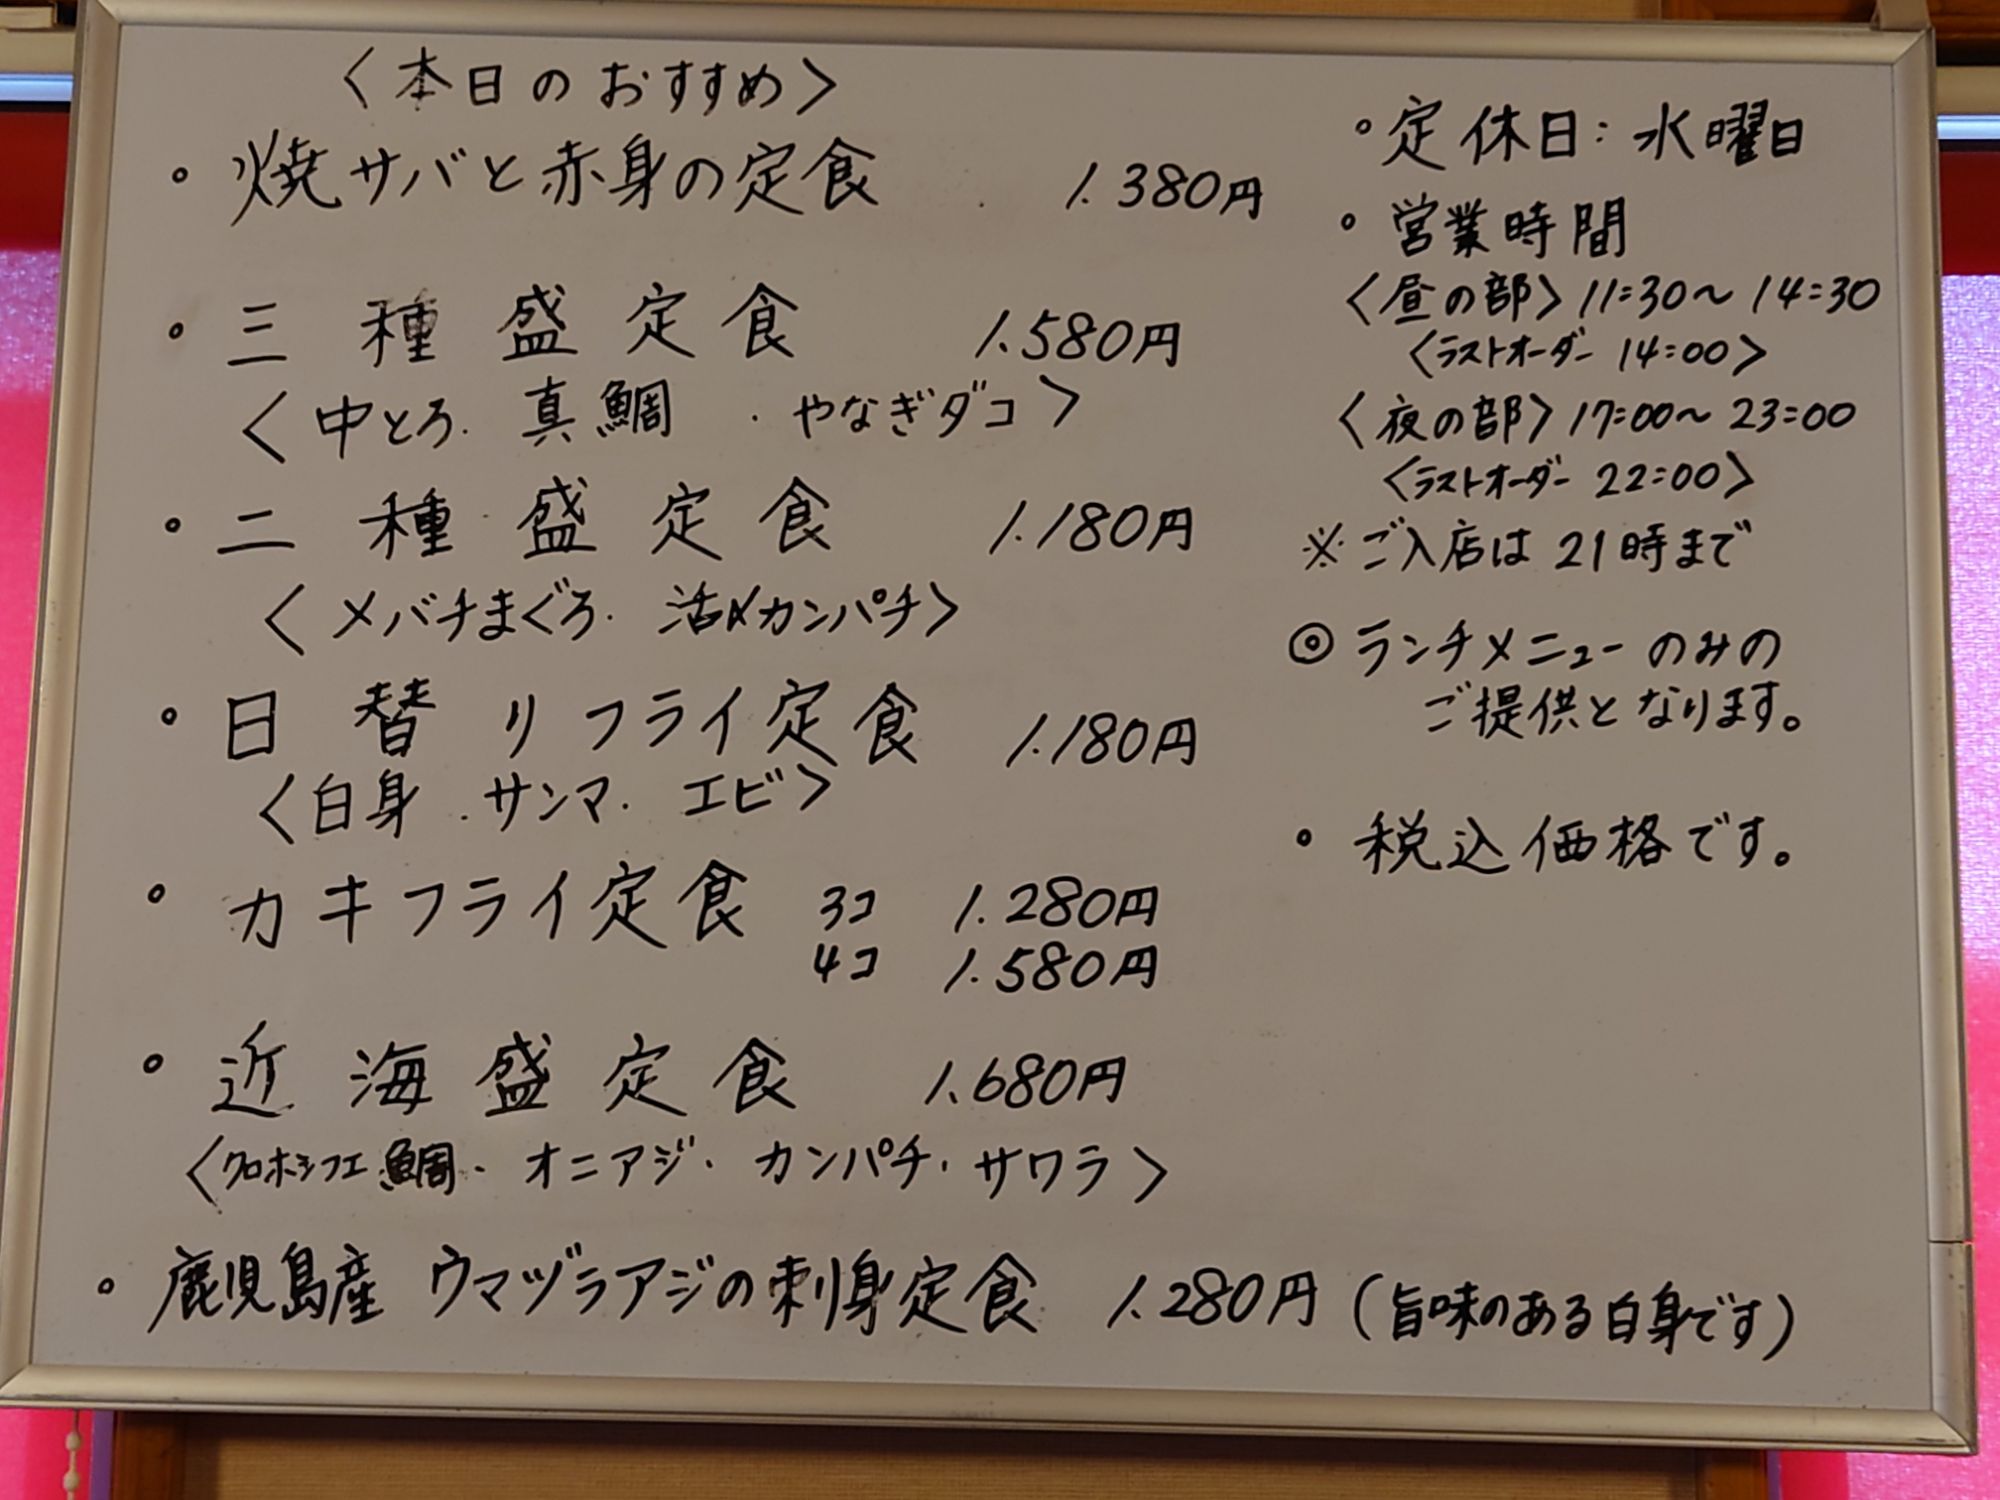 〈本日のおすすめ〉
。焼サバと赤身の定食 1.380円
。三種盛定食 1.580円
〈中とろ.真鯛.やなぎダコ〉
。二種盛定食 1.180円
〈メバチまぐろ.活〆カンパチ〉
。日替リフライ定食 1.180円
〈白身.サンマ.エビ〉
。カキフライ定食 3コ 1.280円
4コ 1.580円
。近海盛定食 1.680円
〈クロホシフエ鯛.オニアジ.カンパチ.サワラ〉
。鹿児島産 ウマヅラアジの刺身定食 1.280円(旨味のある白身です)
。定休日:水曜日
。営業時間
〈昼の部〉11:30〜14:30
〈ラストオーダー 14:00〉
〈夜の部〉17:00〜23:00
〈ラストオーダー 22:00〉
※ご入店は21時まで
◎ランチメニューのみの
ご提供となります。
。税込価格です。